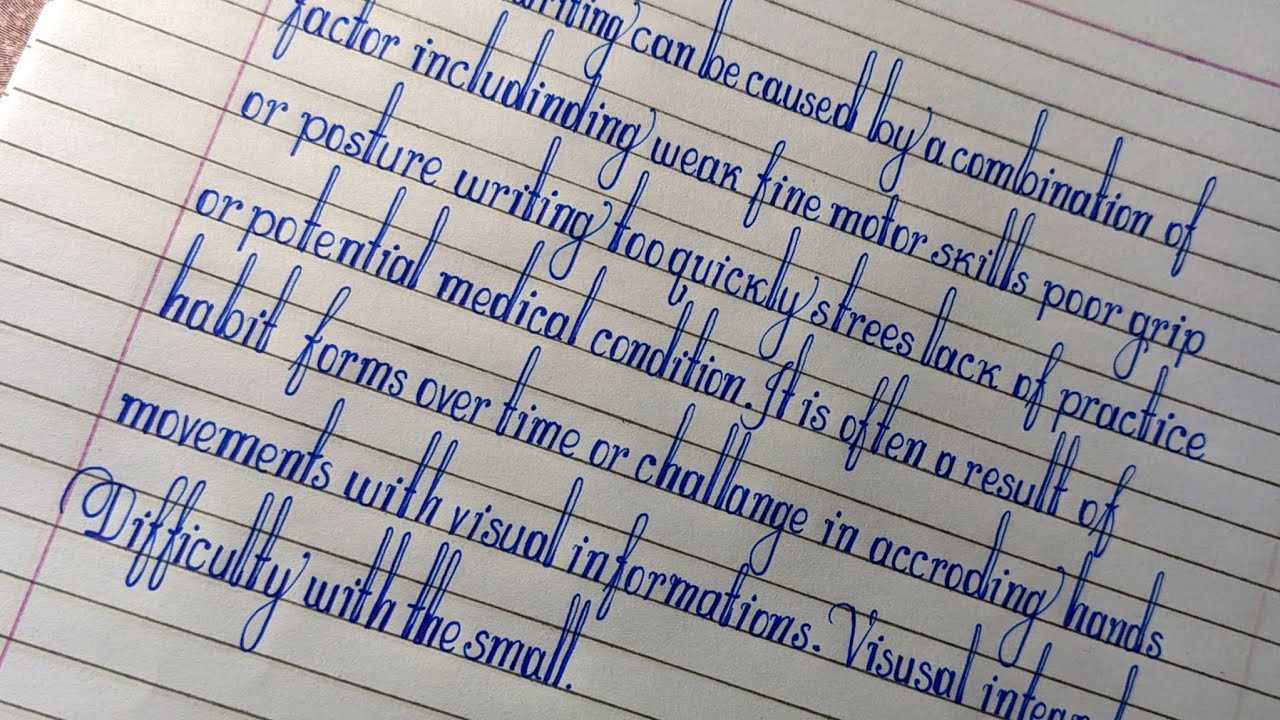 writing can be caused by a combination of
factor includinding weak fine motor skills poor grip
or posture writing too quickly strees lack of practice
or potential medical condition. It is often a result of
habit forms over time or challange in accroding hands
movements with visual informations. Visusal
Difficulty with the small.